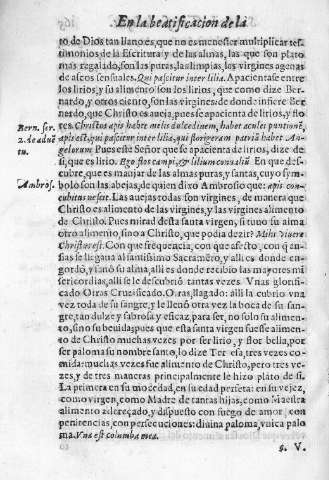 En la beatificacion de la
to de Dios tan llano es, que no es menester multiplicar tes-
timonios de la Escritura y de las almas, las que son plato
mas regalado, son las puras, las limpias, los virgines agenas
de ascos sensuales. Qui pascitur inter lilia. Apacientase entre
los lirios, y su alimento son los lirios, que como dize Ber-
nardo, y otros ciento, son las virgines: de donde infiere Ber
nardo, que Christo es aveja, pues se apacienta de lirios, y flo
res. Christus apis habet melis dulcedinem, habet aculei puntionē,
apis est, qui pascitur inter lilia, qui florigeram patriā habet An-
gelorum. Pues este Señor que se apacienta de lirios, dize de
si, que es lirio. Ego flos campi, & lilium convaliū. En que des-
cubre, que es manjar de las almas puras, y santas, cuyo sym
bolo son las abejas, de quien dixo Ambrosio que: apis con-
cubitus nescit. Las avejas todas son virgines, de manera que
Christo es alimento de las virgines, y las virgines alimento
de Christo. Pues mirad desta santa virgen, si tuvo su alma
otro alimento, sino a Christo, que podia dezir? Mihi vivere
Christus est. Con que frequencia, con que afecto, con q̄ an-
sias se llegava al santissimo Sacramēto, y alli es donde en-
gordò, y sanò su alma, alli es donde recibio las mayores mi
sericordias, alli se le descubriò tantas vezes. Vnas glorifi-
cado. Otras Crucificado. Otras, llagado: alli la cubriò vna
vez toda de su sangre, y le llenò otra vez la boca de su san-
gre, tan dulze y sabrosa y eficaz, para ser, no solo su alimen-
to, sino su bevida; pues que esta santa virgen fuesse alimen-
to de Christo muchas vezes por ser lirio, y flor bella, por
ser paloma su nombre santo, lo dize Teresa, tres vezes co-
mida: muchas vezes fue alimento de Christo, pero tres ve-
zes, y de tres maneras principalmente le hizo plato de si.
La primera en su mocedad, en su edad perfeta: en su vejez,
como virgen, como Madre de tantas hijas, como Maestra
alimento adereçado, y dispuesto con fuego de amor, con
penitencias, con persecuciones: divina paloma, vnica palo
ma. Vna est columba mea.
Bern. ser.
2. de advē
tu.
Ambros.
§. V.